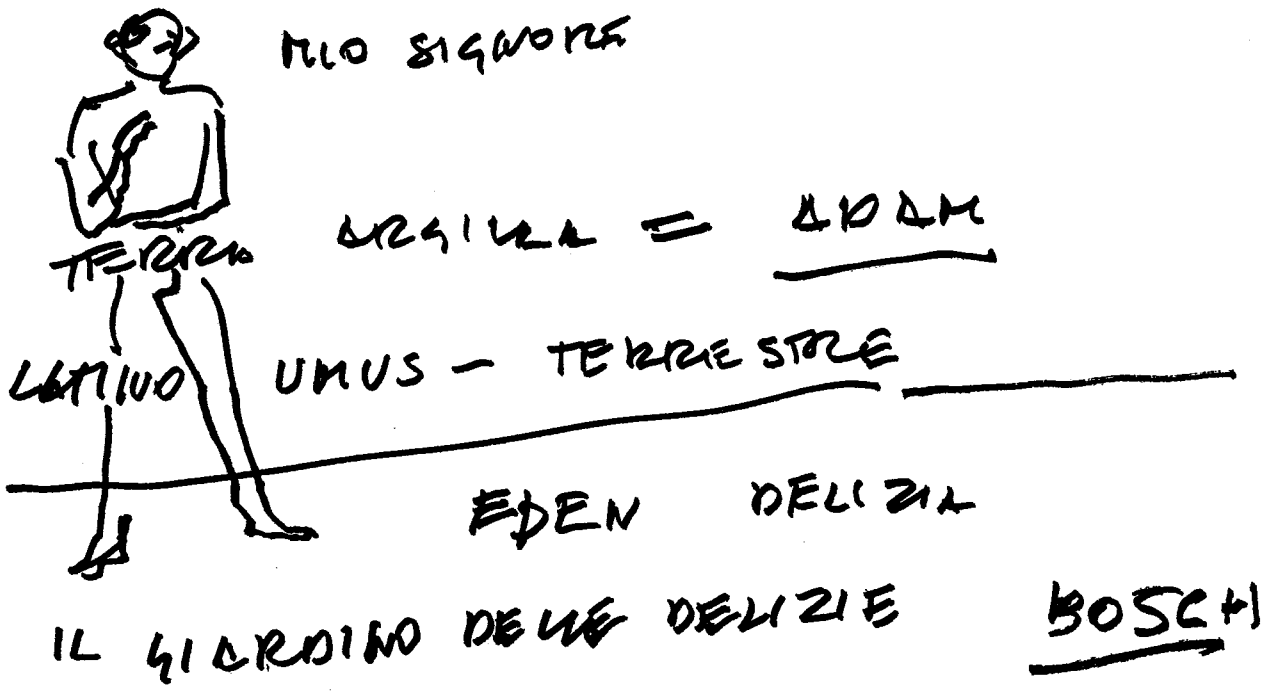 MIO SIGNORE
ARGILLA = ADAM
TERRA
LATINO UMUS - TERRESTRE
EDEN DELIZIA
IL GIARDINO DELLE DELIZIE BOSCH